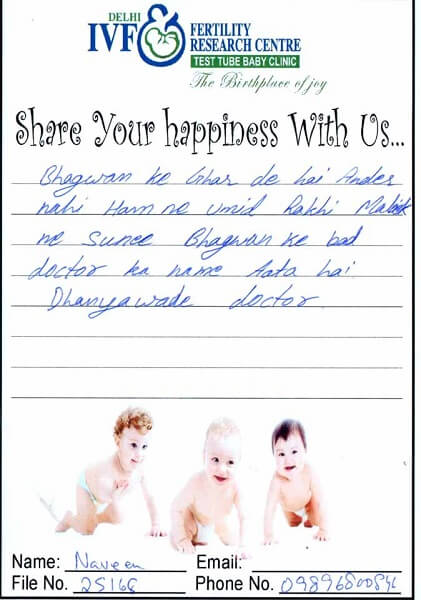 DELHI
IVF & FERTILITY
RESEARCH CENTRE
TEST TUBE BABY CLINIC
The Birthplace of joy
Share Your happiness With Us...
Bhagwan ke Ghar de hai Ander
nahi Ham ne Umid Rakhi Malick
ne Sunee Bhagwan ke bad
doctor ka name Aata hai.
Dhanyawade doctor.
Name: Naveen Email:
File No. 25166 Phone No.